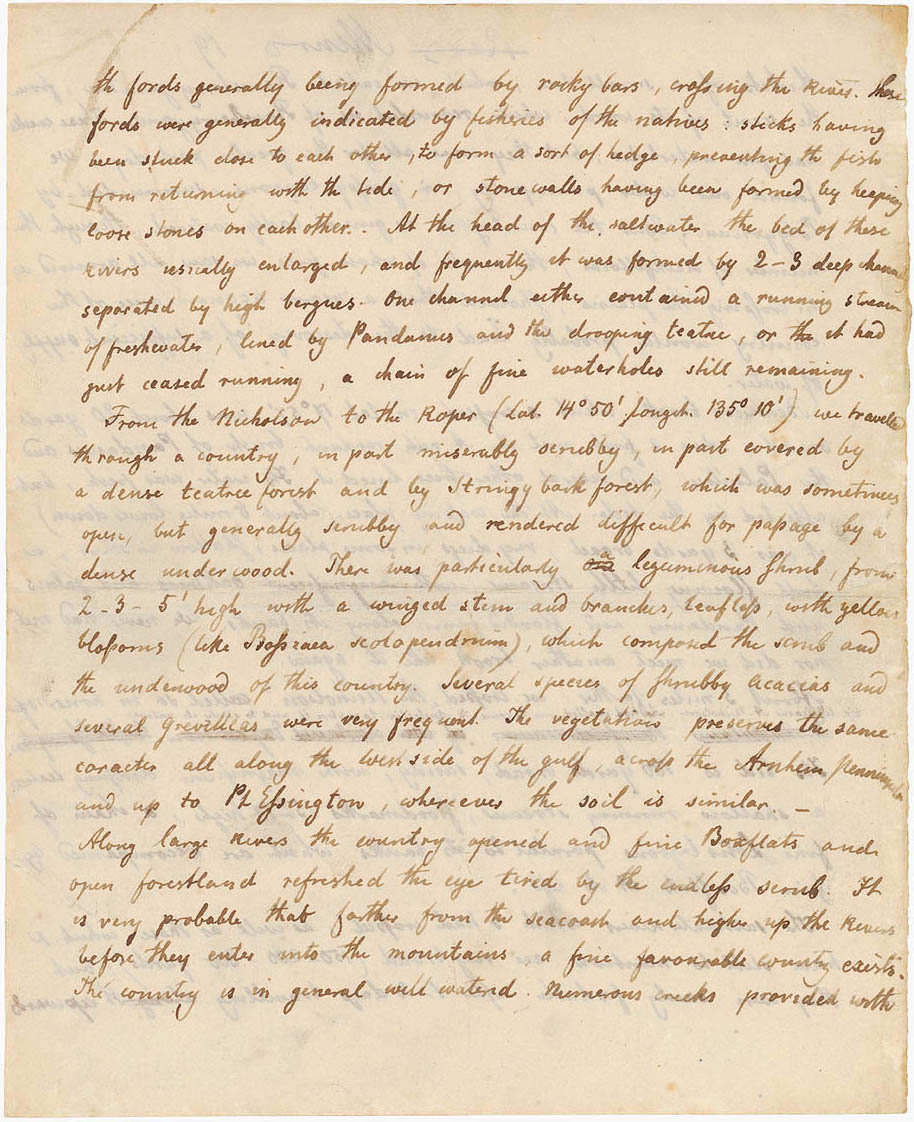 th fords generally being formed by rocky bars, crossing the River. these
fords were generally indicated by fisheries of the natives: sticks having
been stuck close to each other, to form a sort of hedge, preventing the fish
from returning with th tide; or stone walls having been formed by heeping
loose stones on each other.. At the head of the saltwater the bed of these
Rivers usually enlarged, and frequently it was formed by 2-3 deep channels
separated by high bergues. One channel either contained a running stream
of freshwater, lined by Pandanus and the drooping teatree, or the it had
just ceased running, a chain of fine waterholes still remaining.
From the Nicholson to the Roper (Lat. 14° 50' longit. 135° 10') we travelled
through a country, in part miserably scrubby, in part covered by
a dense teatree forest and by Stringybark forest, which was sometimes
open, but generally scrubby and rendered difficult for passage by a
dense underwood. There was particularly one a leguminous shrub, from
2-3-5' high with a winged stem and branches, leafless, with yellow
blossoms (like Bossiaea scolopendrium), which composed the scrub and
the underwood of this country. Several species of shrubby Acacias and
several Grevilleas were very frequent. The vegetation preserves the same
caracter all along the westside of the gulf, across the Arnheim Penninsula
and up to Pt Essington, whereever the soil is similar. —
Along large Rivers the country opened and fine Boxflats and
open forestland refreshed the eye tired by the endless scrub. It
is very probable that farther from the seacoast and higher up the Rivers
before they enter into the mountains a fine favourable country exists.
The country is in general well waterd. Numerous creeks provided with